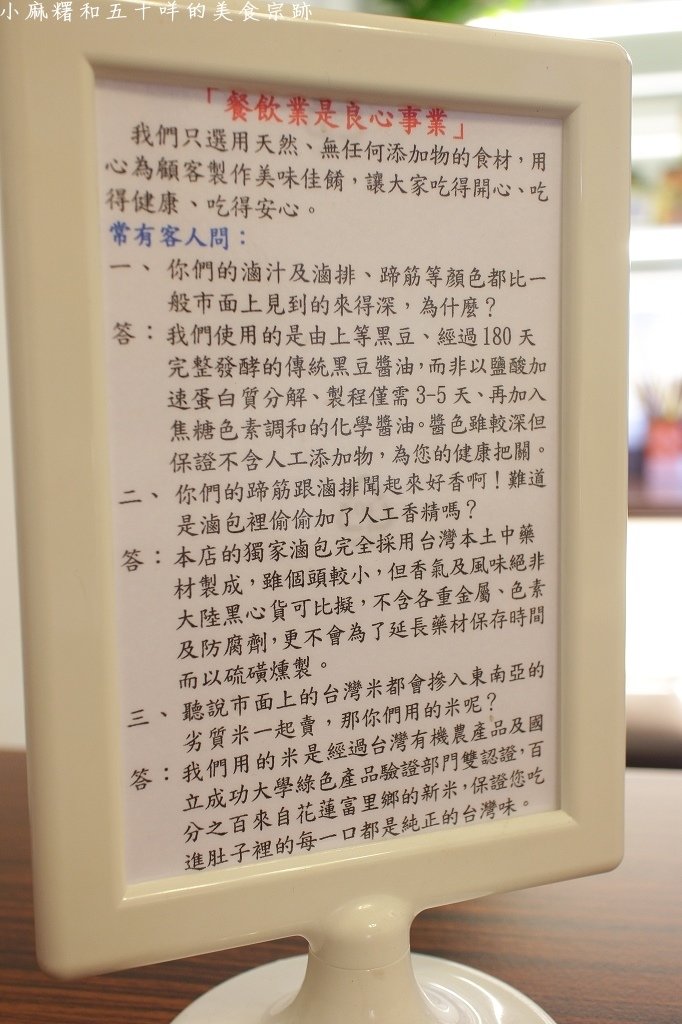 小麻糬和五十咩的美食宗跡
「餐飲業是良心事業」
我們只選用天然、無任何添加物的食材，用
心為顧客製作美味佳餚，讓大家吃得開心、吃
得健康、吃得安心。
常有客人問：
一、你們的滷汁及滷排、蹄筋等顏色都比一
般市面上見到的來得深，為什麼？
答：我們使用的是由上等黑豆、經過180天
完整發酵的傳統黑豆醬油，而非以鹽酸加
速蛋白質分解、製程僅需3-5天、再加入
焦糖色素調和的化學醬油。醬色雖較深但
保證不含人工添加物，為您的健康把關。
二、你們的蹄筋跟滷排聞起來好香啊！難道
是滷包裡偷偷加了人工香精嗎？
答：本店的獨家滷包完全採用台灣本土中藥
材製成，雖個頭較小，但香氣及風味絕非
大陸黑心貨可比擬，不含各重金屬、色素
及防腐劑，更不會為了延長藥材保存時間
而以硫磺燻製。
三、聽說市面上的台灣米都會摻入東南亞的
劣質米一起賣，那你們用的米呢？
答：我們用的米是經過台灣有機農產品及國
立成功大學綠色產品驗證部門雙認證，百
分之百來自花蓮富里鄉的新米，保證您吃
進肚子裡的每一口都是純正的台灣味。